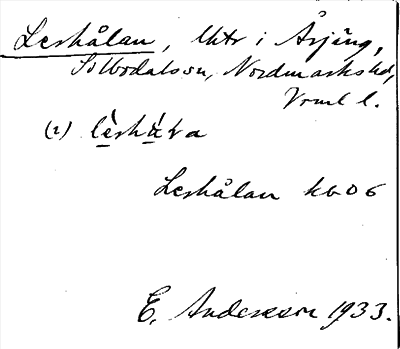 Leshålan, Uttr i Årjäng,
Silbodalssn, Nordmarkshd,
Vrml l.
(2) lèshá̱ɾa
Leshålan kbO6
E. Andersson 1933.